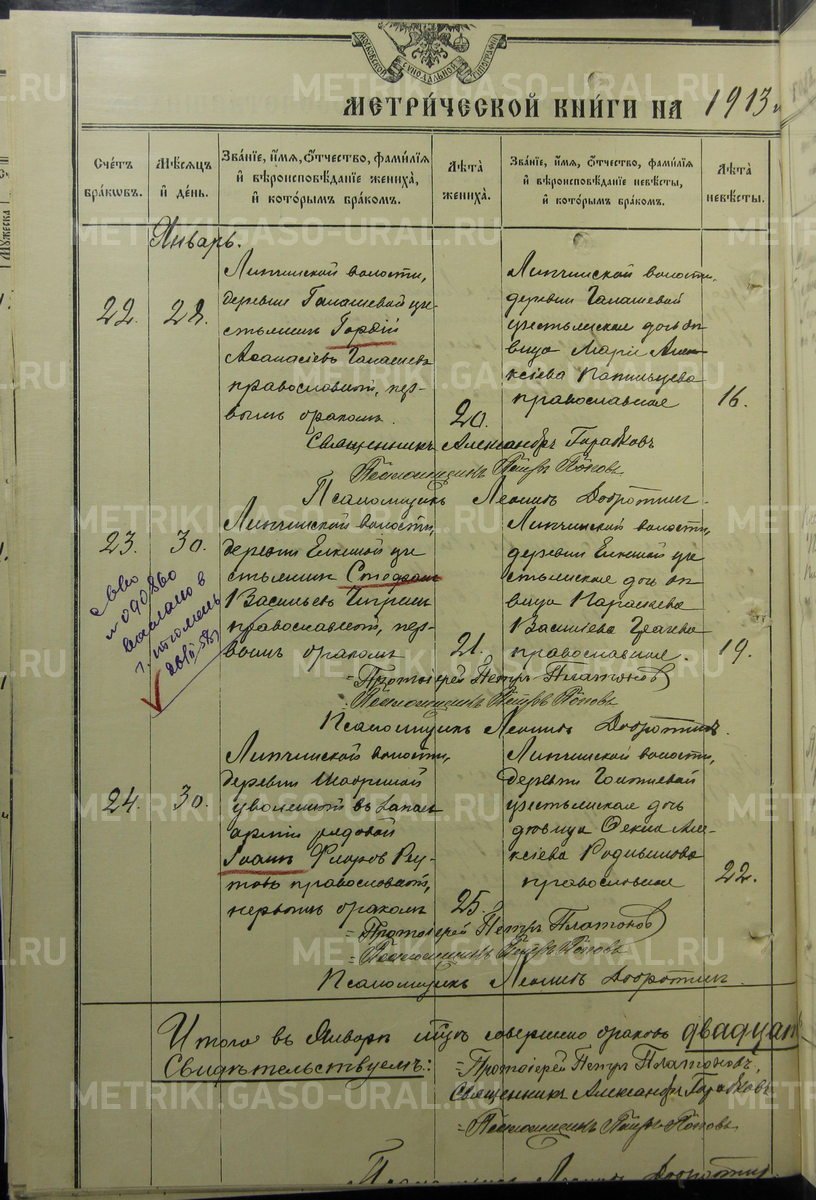 МОСКОВСКОЙ СѴНОДАЛЬНОЙ ТИПОГРАФІИ
МЕТРИ́ЧЕСКОЙ КНИ́ГИ НА 1913
Сче́тъ бра́кѡвъ.
Мѣ́сяцъ и҆ де́нь.
Зва́нїе, и҆́мя, ѻ҆́тчество, фами́лїя и҆ вѣроисповѣ́данїе жениха̀, и҆ кото́рымъ бра́комъ.
Лѣ́та жениха̀.
Зва́нїе, и҆́мя, ѻ҆́тчество, фами́лїя и҆ вѣроисповѣ́данїе невѣ́сты, и҆ кото́рымъ бра́комъ.
Лѣ́та невѣ́сты.
Январь.
22.
28.
Липчинской волости,
деревни Галашевой кре-
стьянинъ Гордій
Аѳанасіевъ Галашевъ
православный, пер-
вымъ бракомъ.
20.
Липчинской волости,
деревни Галашевой
крестьянская дочь дѣ-
вица Марія Алек-
сіева
православная
16.
Священникъ Александръ
Псаломщикъ Петръ Поповъ
Псаломщикъ Леонидъ Добротинъ.
23.
30.
Липчинской волости,
деревни кре-
стьянинъ Стефанъ
Васильевъ
православный, пер-
вымъ бракомъ
21.
Липчинской волости,
деревни кре-
стьянская дочь дѣ-
вица Параскева
Васильева
православная.
19.
Св-во
№ 090860
выслано в
г. Тюмень
Протоіерей Петръ Платоновъ
Псаломщикъ Петръ Поповъ
Псаломщикъ Леонидъ Добротинъ.
24.
30.
Липчинской волости,
деревни
уволенный въ запасъ
арміи рядовой
Іоаннъ Флоровъ
православный,
первымъ бракомъ
25.
Липчинской волости,
деревни
крестьянская дочь
дѣвица Ѳекла Але-
ксіева Родивилова
православная
22.
Протоіерей Петръ Платоновъ
Псаломщикъ Петръ Поповъ
Псаломщикъ Леонидъ Добротинъ.
Итого въ Январѣ м-цѣ совершено браковъ двадцат
Свидѣтельствуемъ:
Протоіерей Петръ Платоновъ,
Священникъ Александръ
Псаломщикъ Петръ Поповъ
Псаломщикъ Леонидъ Добротин
METRIKI.GASO-URAL.RU